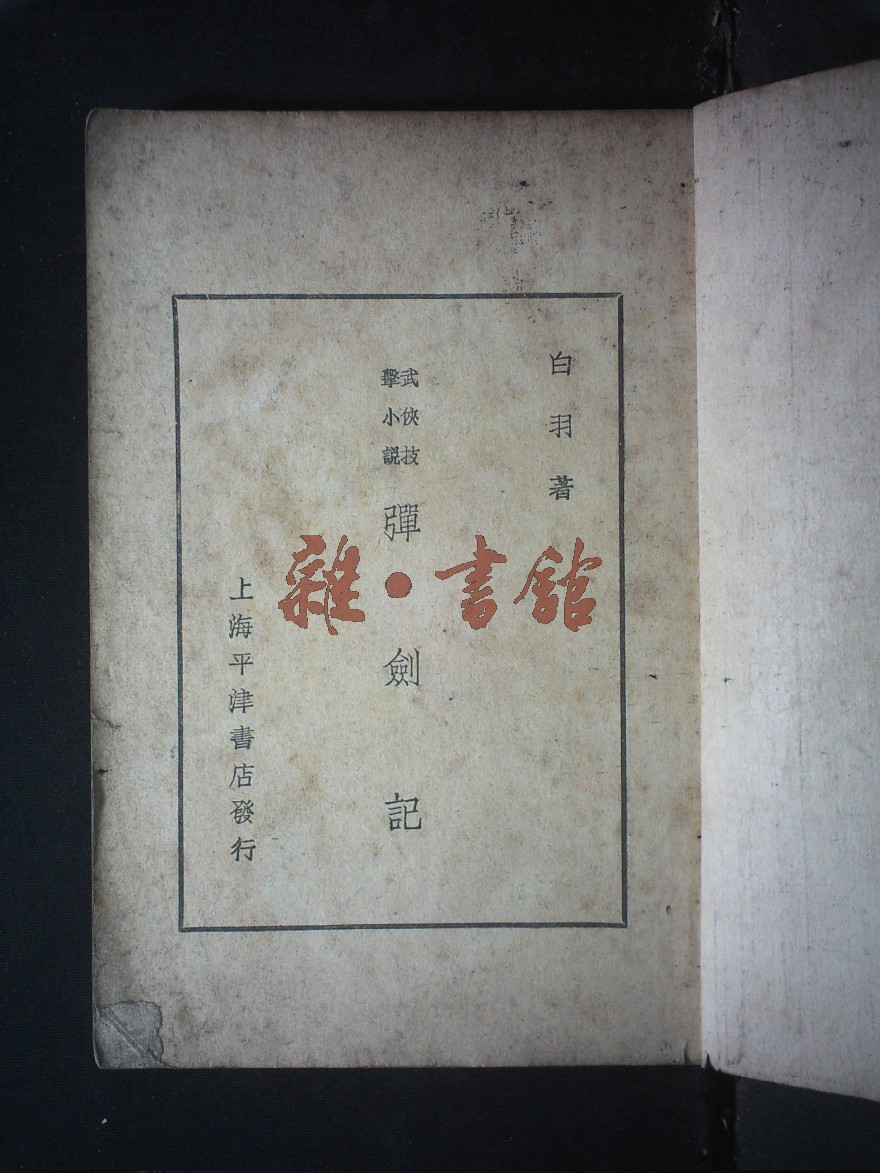 白羽著
武俠技
擊小説
彈劍記
上海平津書店發行
雜·書館